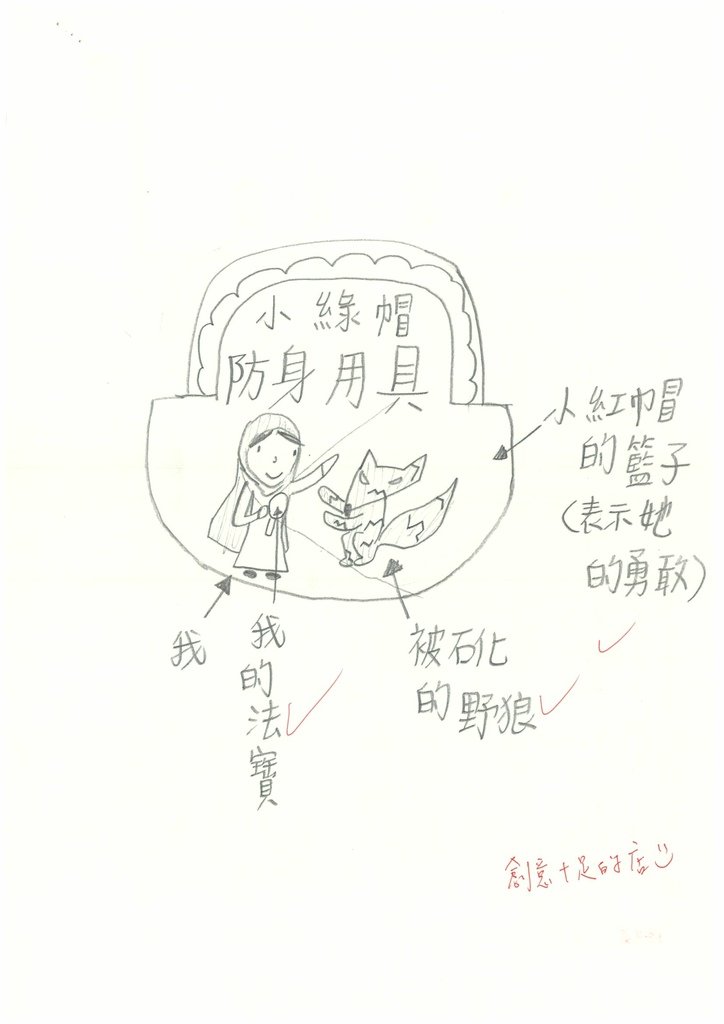 小綠帽
防身用具
小紅帽
的籃子
(表示她
的勇敢)
我
我的法寶
被石化
的野狼
創意十足的店